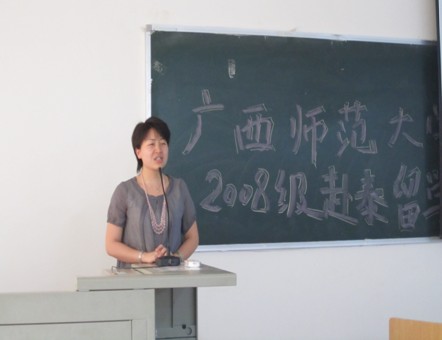 广西师范大
2008级赴泰留